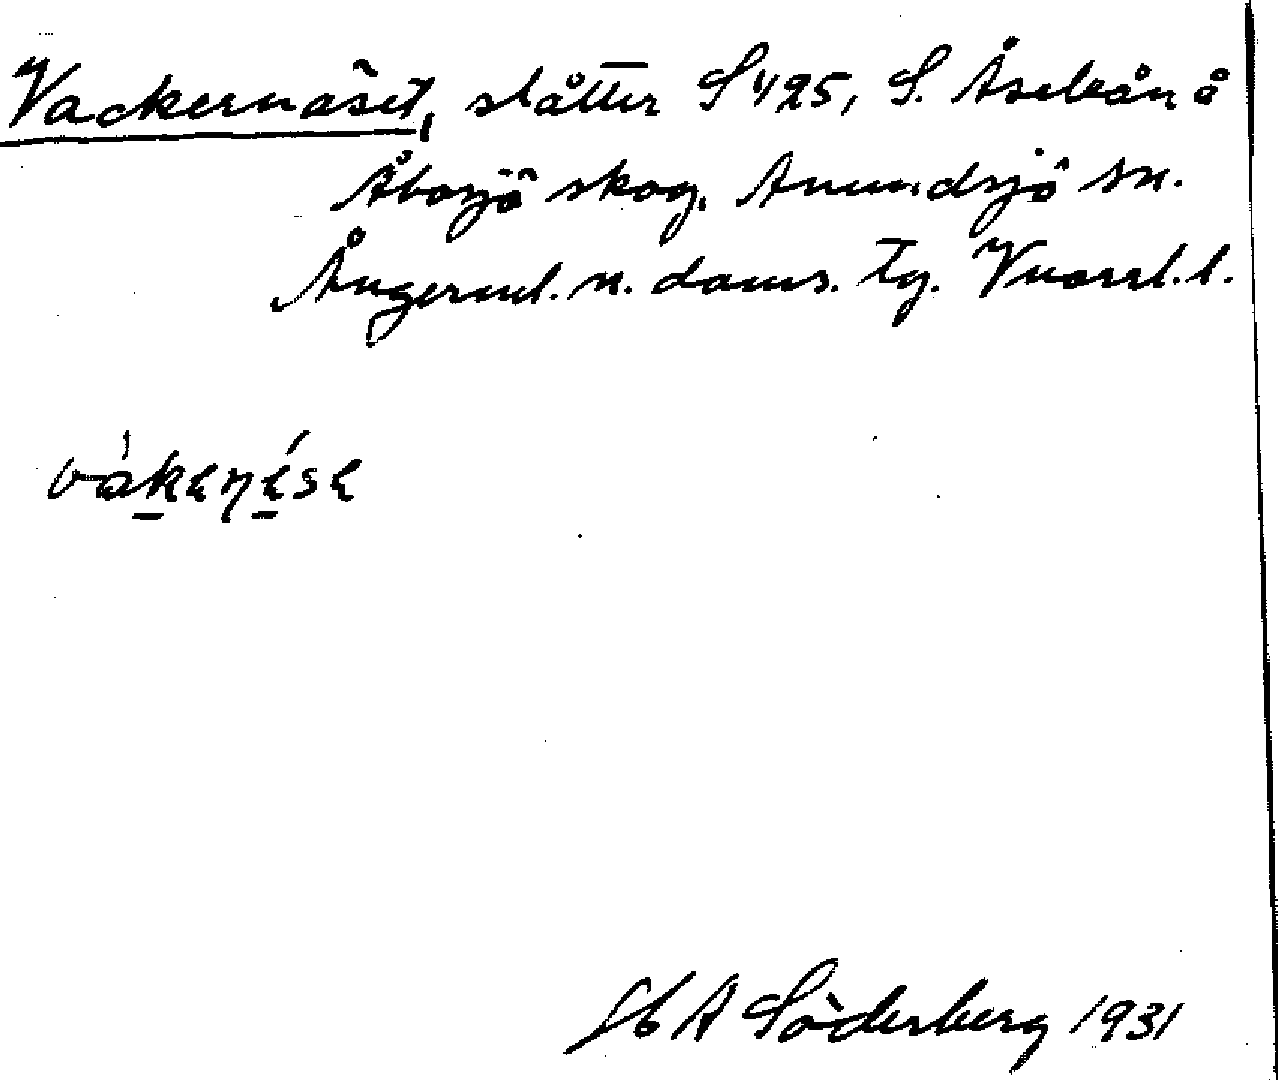 Vackernäset, slåtter S 425, S. Åsebån å
Åbosjö skog, Anundsjö sn.
Ångerml. n. doms. Tg.
vákenése
A Söderberg 1931